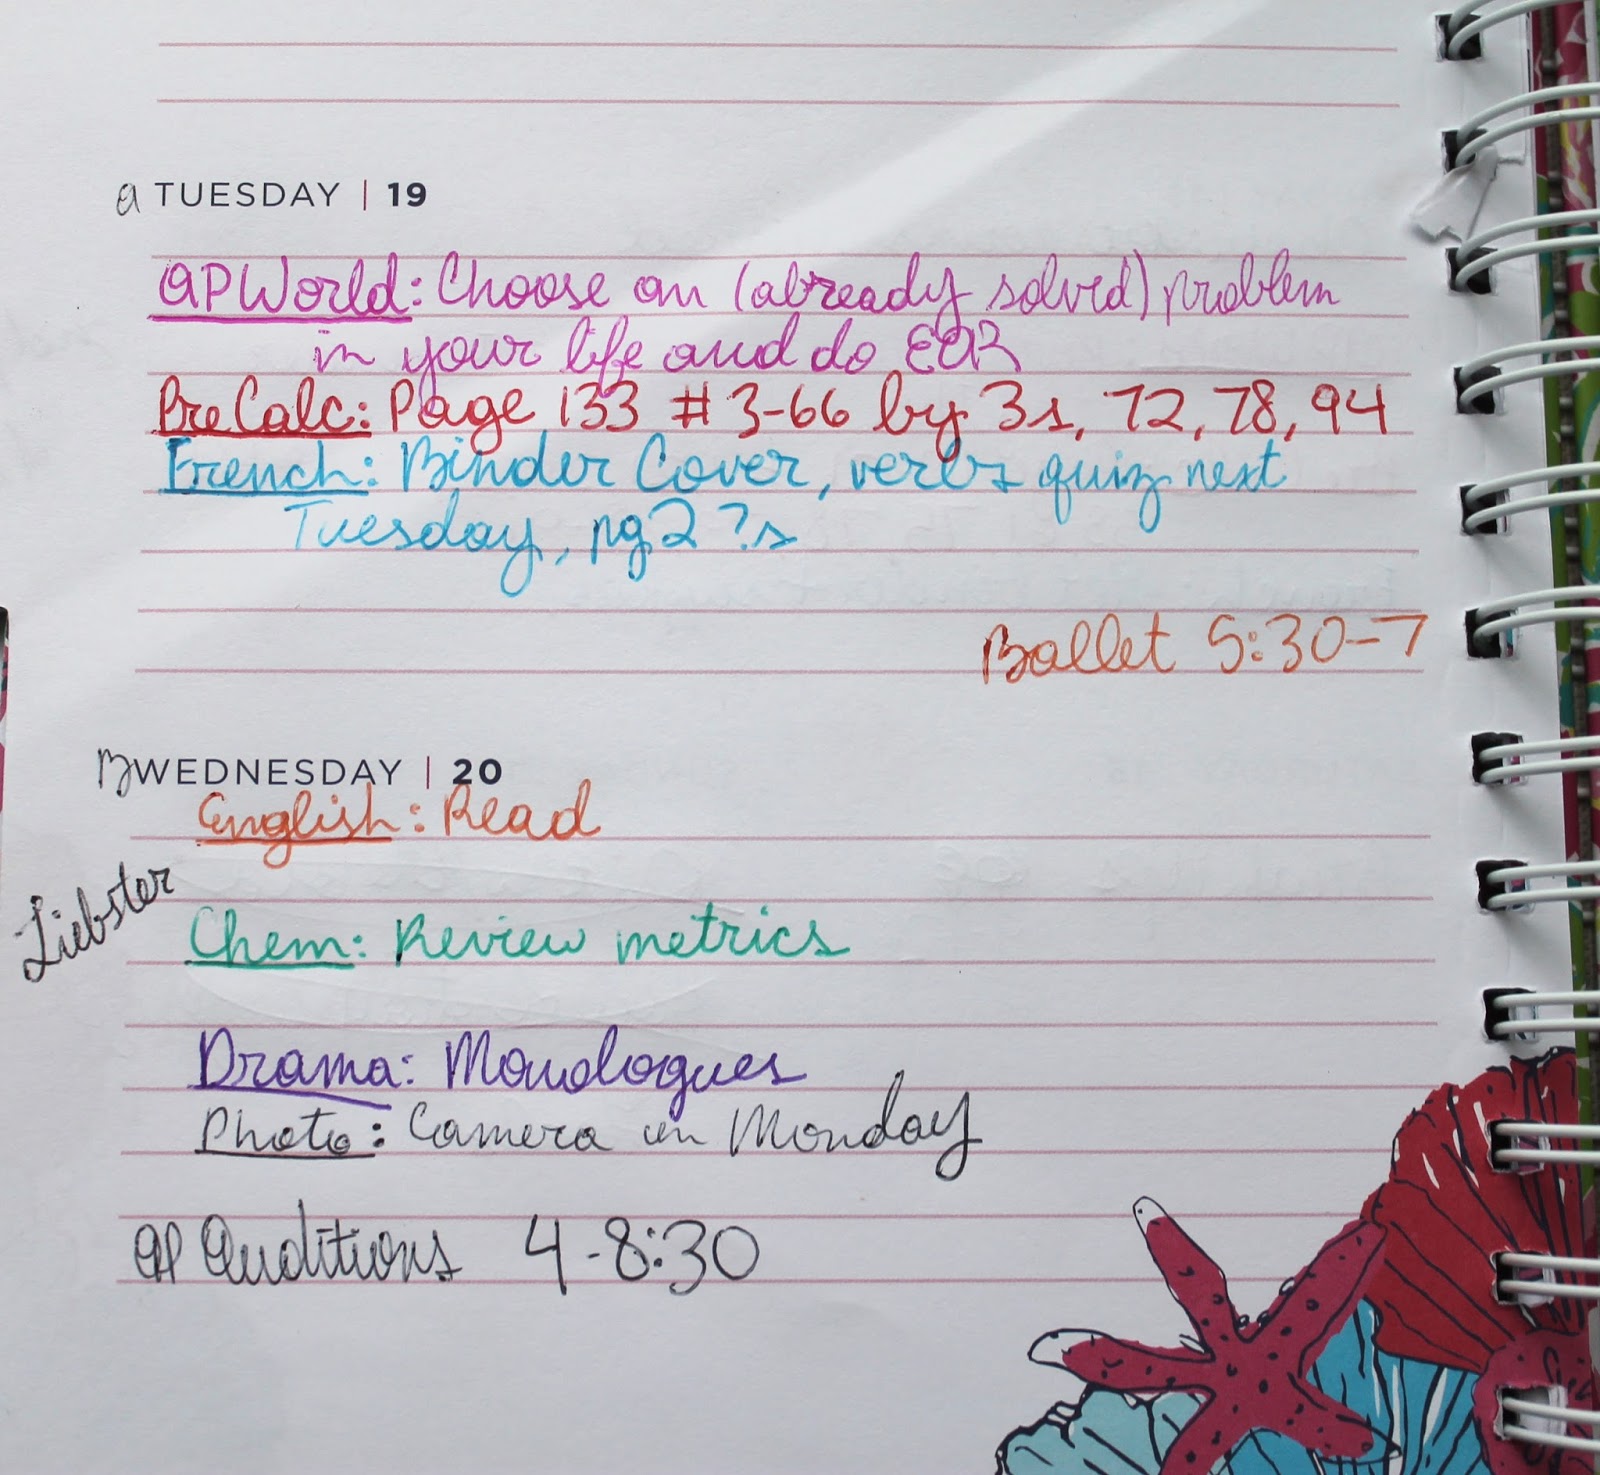 a TUESDAY | 19
AP World: Choose an (already solved) problem
in your life and do EAR
PreCalc: Page 133 # 3-66 by 3s, 72, 78, 94
French: Binder Cover, verbs quiz next
Tuesday, pg 2 ?s
Ballet 5:30-7
B WEDNESDAY | 20
English: Read
Liebster
Chem: Review metrics
Drama: Monologues
Photo: Camera on Monday
AP Auditions 4-8:30